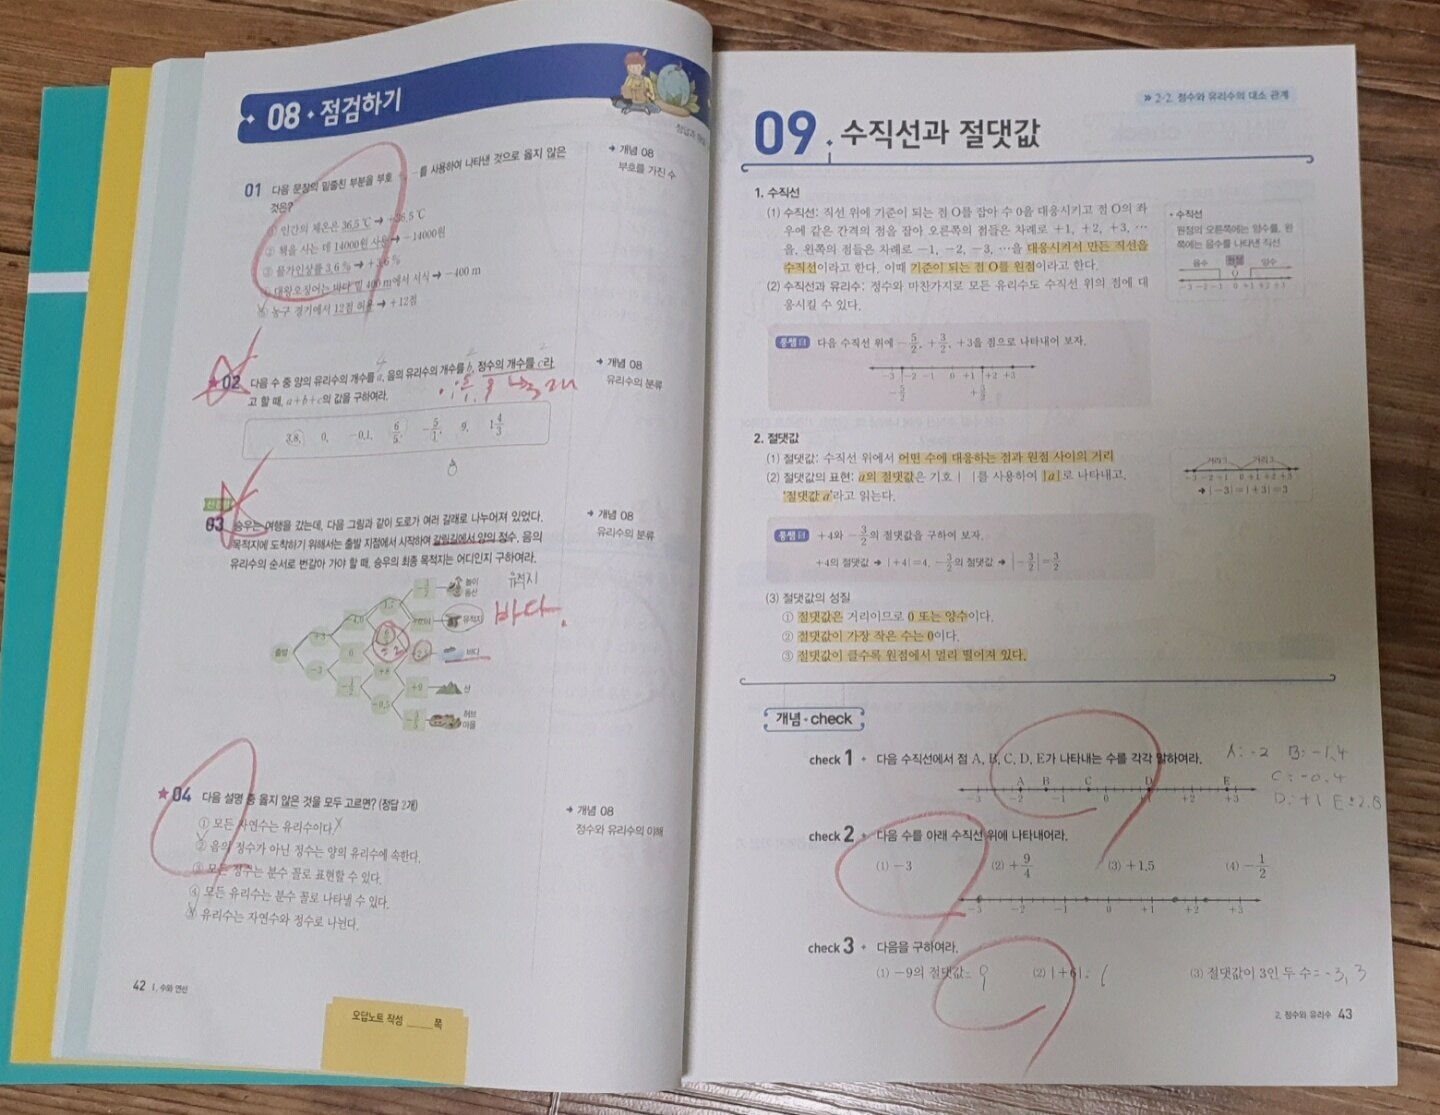 08 점검하기
정답과
01 다음 문장의 밑줄친 부분을 부호 -를 사용하여 나타낸 것으로 옳지 않은
것은?
① 인간의 체온은 36.5℃ → +36.5℃
② 책을 사는 데 14000원 사용 → -14000원
③ 물가인상률 3.6% → +3.6%
대왕오징어는 바다 밑 400m에서 서식 → -400 m
⑤ 농구 경기에서 12점 허용 → +12점
→ 개념 08
부호를 가진 수
4 2 2
★02 다음 수 중 양의 유리수의 개수를 a, 음의 유리수의 개수를 b, 정수의 개수를 c라
고 할 때, a+b+c의 값을 구하여라.
3.8, 0, -0.1, 6/5, -5/1, 9, 1 4/3
8
→ 개념 08
유리수의 분류
03 승우는 여행을 갔는데, 다음 그림과 같이 도로가 여러 갈래로 나누어져 있었다.
목적지에 도착하기 위해서는 출발 지점에서 시작하여 갈림길에서 양의 정수, 음의
유리수의 순서로 번갈아 가야 할 때, 승우의 최종 목적지는 어디인지 구하여라.
→ 개념 08
유리수의 분류
출발
+3
-3
0
+8
-0.5
+9
놀이
동산
유적지
바다
산
허브
마을
유적지
바다.
★04 다음 설명 중 옳지 않은 것을 모두 고르면? (정답 2개)
① 모든 자연수는 유리수이다.
② 음의 정수가 아닌 정수는 양의 유리수에 속한다.
③ 모든 정수는 분수 꼴로 표현할 수 있다.
④ 모든 유리수는 분수 꼴로 나타낼 수 있다.
⑤ 유리수는 자연수와 정수로 나뉜다.
→ 개념 08
정수와 유리수의 이해
42 Ⅰ. 수와 연산
오답노트 작성 ____쪽
» 2-2. 정수와 유리수의 대소 관계
09 수직선과 절댓값
1. 수직선
(1) 수직선: 직선 위에 기준이 되는 점 O를 잡아 수 0을 대응시키고 점 O의 좌
우에 같은 간격의 점을 잡아 오른쪽의 점들은 차례로 +1, +2, +3, …
을, 왼쪽의 점들은 차례로 -1, -2, -3, …을 대응시켜서 만든 직선을
수직선이라고 한다. 이때 기준이 되는 점 O를 원점이라고 한다.
(2) 수직선과 유리수: 정수와 마찬가지로 모든 유리수도 수직선 위의 점에 대
응시킬 수 있다.
• 수직선
원점의 오른쪽에는 양수를, 왼
쪽에는 음수를 나타낸 직선
음수 원점 양수
O
-3 -2 -1 0 +1 +2 +3
통쌤 다음 수직선 위에 -5/2, +3/2, +3을 점으로 나타내어 보자.
-3 -2 -1 0 +1 +2 +3
-5/2 +3/2
2. 절댓값
(1) 절댓값: 수직선 위에서 어떤 수에 대응하는 점과 원점 사이의 거리
(2) 절댓값의 표현: a의 절댓값은 기호 | |를 사용하여 |a|로 나타내고,
'절댓값 a'라고 읽는다.
거리 3 거리 3
-3 -2 -1 0 +1 +2 +3
→ |-3|=|+3|=3
통쌤 +4와 -3/2의 절댓값을 구하여 보자.
+4의 절댓값 → |+4|=4, -3/2의 절댓값 → |-3/2|=3/2
(3) 절댓값의 성질
① 절댓값은 거리이므로 0 또는 양수이다.
② 절댓값이 가장 작은 수는 0이다.
③ 절댓값이 클수록 원점에서 멀리 떨어져 있다.
개념·check
check 1 다음 수직선에서 점 A, B, C, D, E가 나타내는 수를 각각 말하여라.
A: -2 B: -1.4
C: -0.4
D: +1 E: 2.8
A B C D E
-3 -2 -1 0 +1 +2 +3
check 2 다음 수를 아래 수직선 위에 나타내어라.
(1) -3 (2) +9/4 (3) +1.5 (4) -1/2
-3 -2 -1 0 +1 +2 +3
check 3 다음을 구하여라.
(1) -9의 절댓값= 9 (2) |+6|= 6 (3) 절댓값이 3인 두 수= -3, 3
2. 정수와 유리수 43